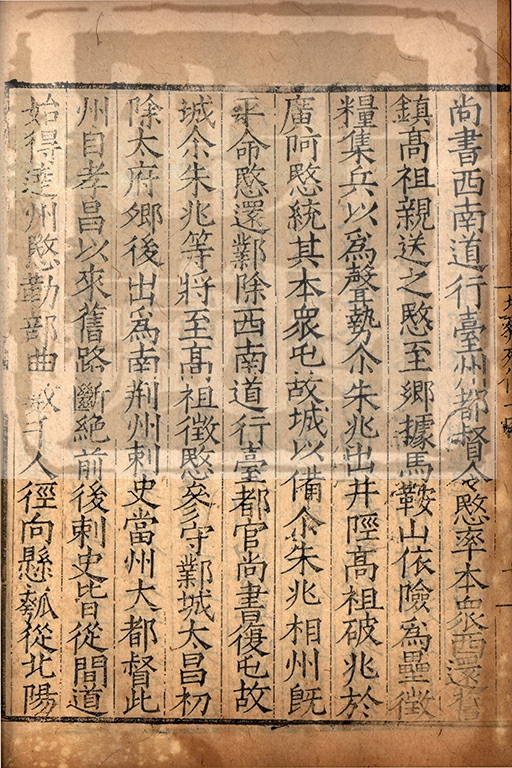 尚書西南道行臺州都督令愍率本衆西還舊
鎮高祖親送之愍至鄉據馬鞍山依險爲壘徵
糧集兵以爲聲勢尒朱兆出井陘高祖破兆於
廣阿愍統其本衆屯故城以備尒朱兆相州既
平命愍還鄴除西南道行臺都官尚書復屯故
城尒朱兆等將至高祖徵愍參守鄴城太昌初
除太府卿後出爲南荆州刺史當州大都督此
州自孝昌以來舊路斷絶前後刺史皆從間道
始得達州愍勒部曲數千人徑向懸瓠從北陽